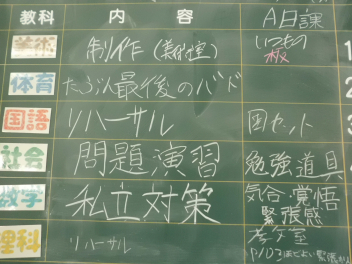 教科 内容 A日課
美術 制作(美術室) いつもの 板 1
体育 たぶん最後のバド 2
国語 リハーサル 国セット 3
社会 問題演習 勉強道具
数学 私立対策 気合・覚悟 緊張感
理科 リハーサル